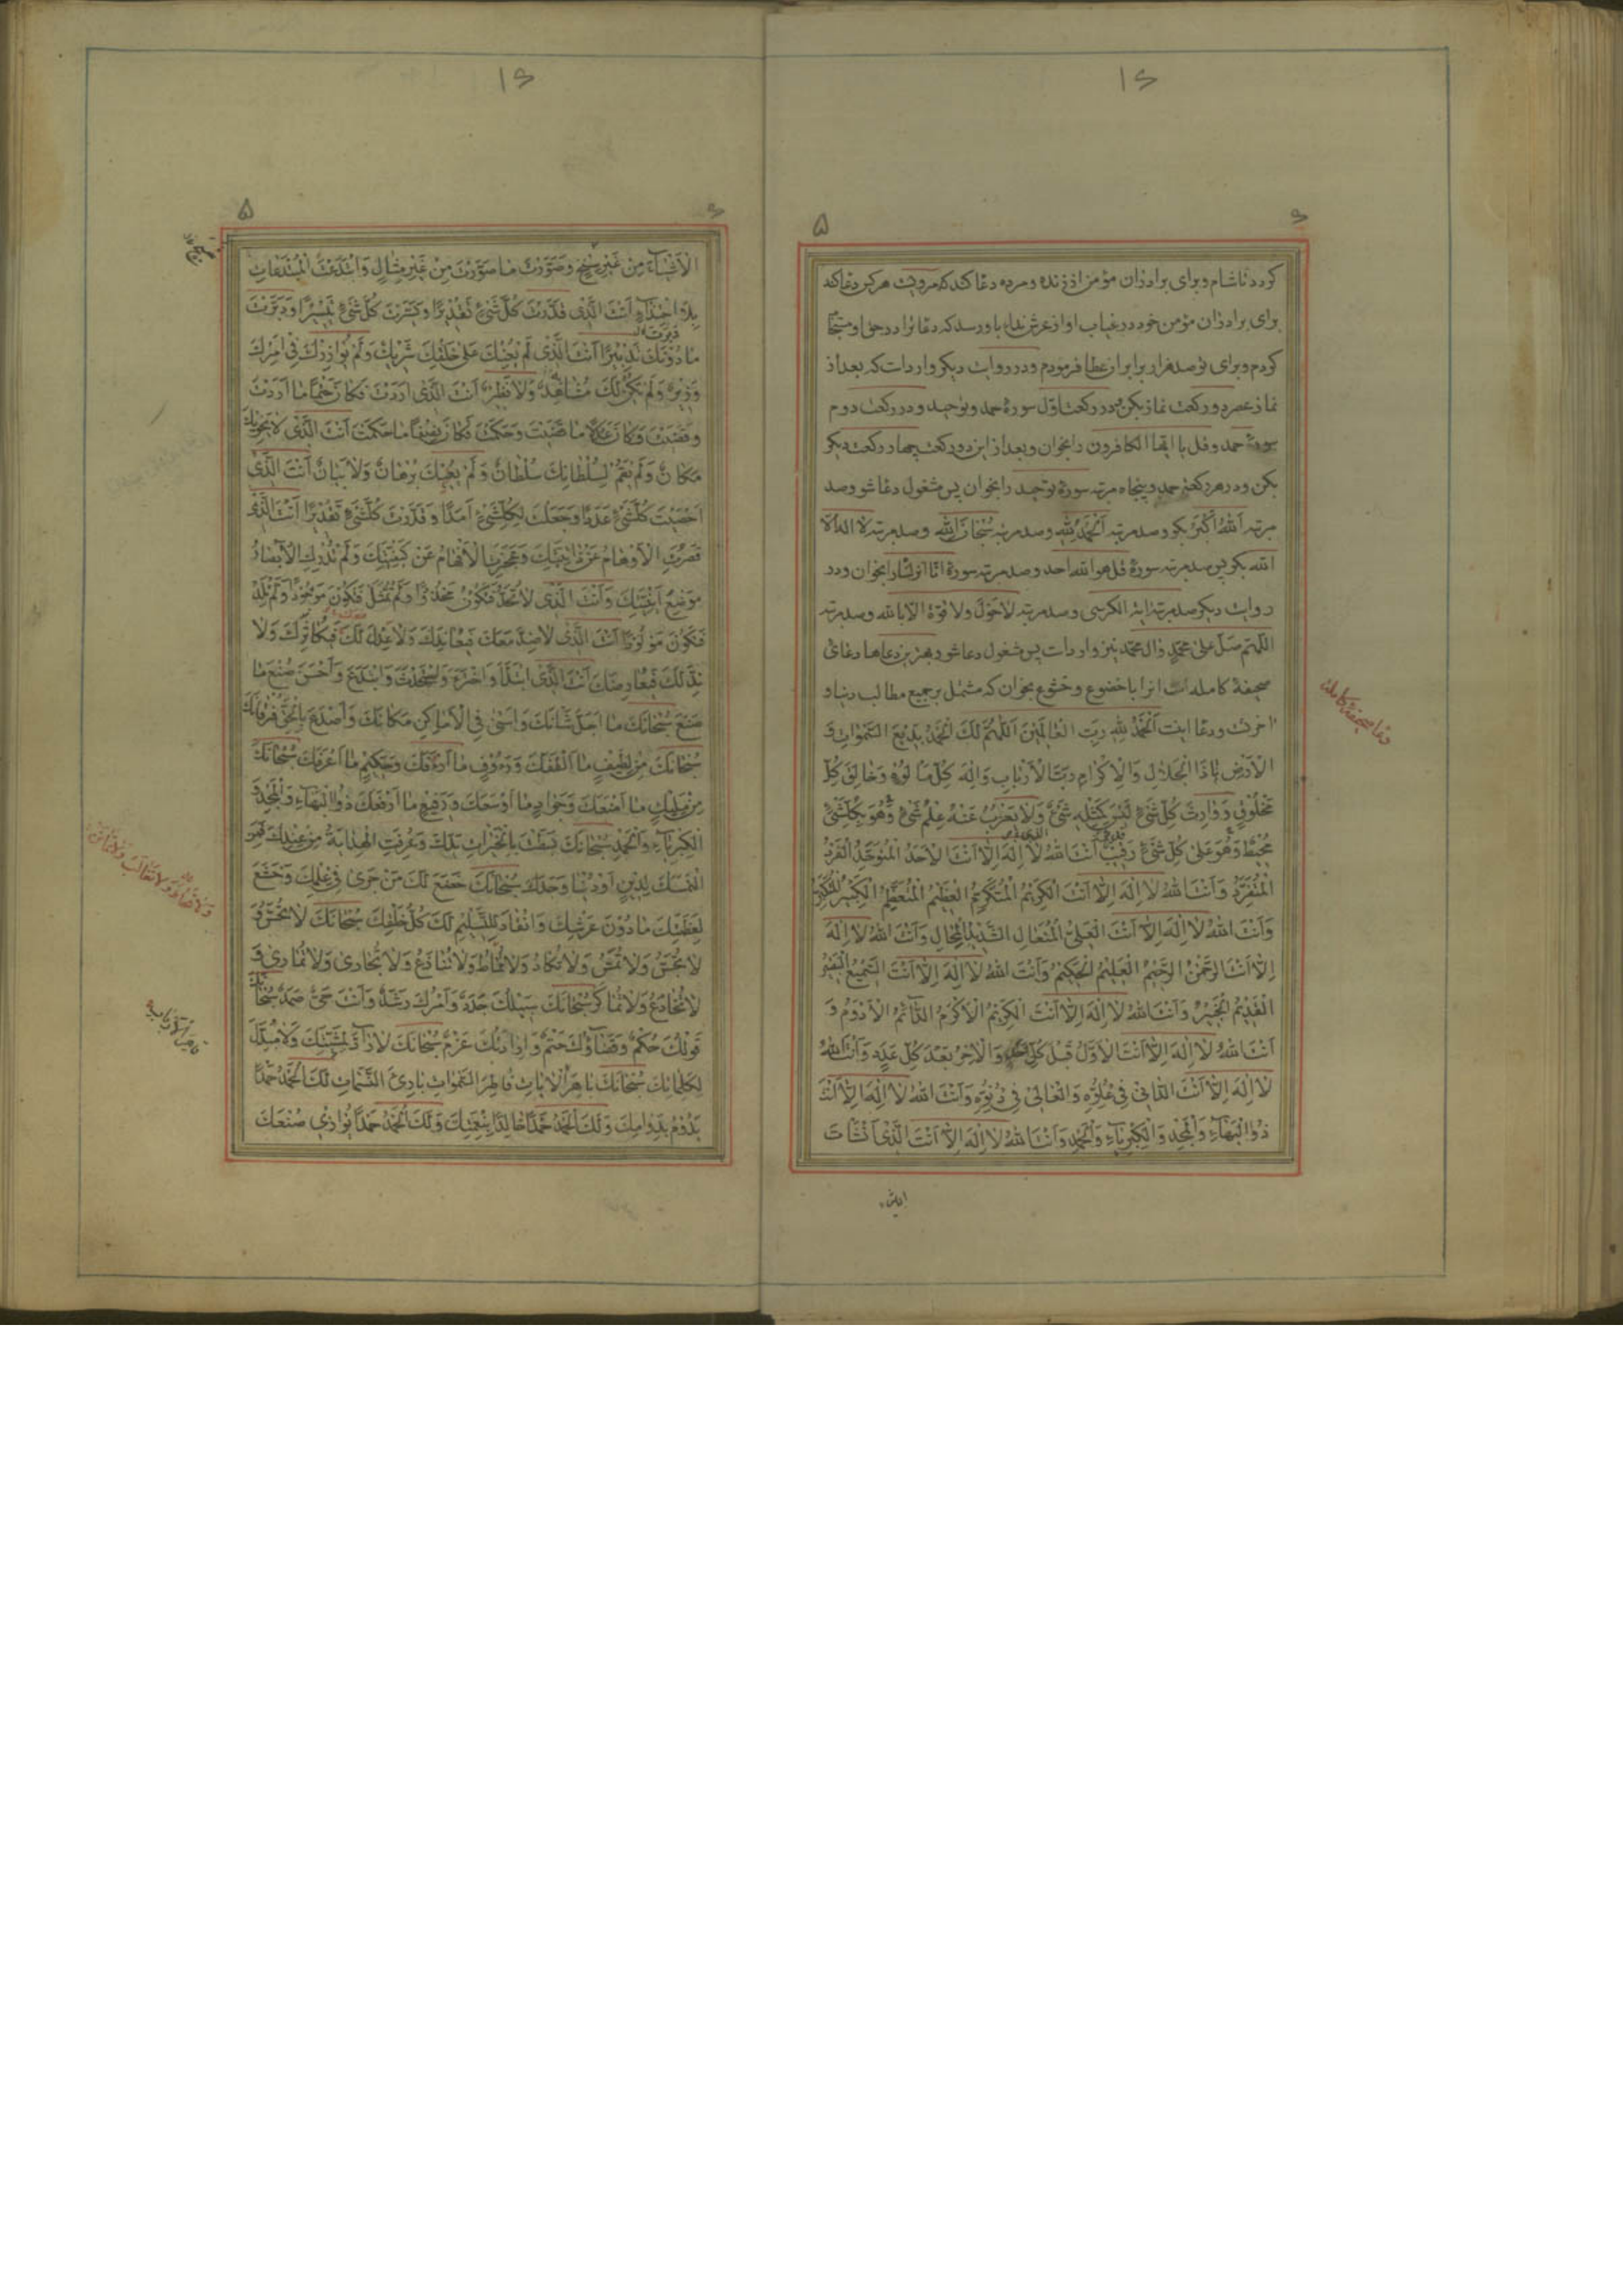 کردد تا شام و برای برادران مؤمن از زنده و مرده دعا کند که مرویست هر کس دعا کند
برای برادران مؤمن خود در غیاب او از عرش نداء باو رسد که دعا تو در حق او مستجاب
کردم و برای تو صد هزار برابر آن عطا فرمودم و در روایت دیکر وارد است که بعد از
نماز عصر دو رکعت نماز بکن در رکعت اول سورهٔ حمد و توحید و در رکعت دوم
سورهٔ حمد و قل یا ایها الکافرون را بخوان و بعد از این دو رکعت چهار رکعت دیکر
بکن و در هر رکعتی حمد و پنجاه مرتبه سورهٔ توحید را بخوان پس مشغول دعا شو و صد
مرتبه اَللّٰهُ اَکْبَرُ بکو و صد مرتبه اَلْحَمْدُ لِلّٰهِ و صد مرتبه سُبْحَانَ اللّٰهِ و صد مرتبه لا اله الا
الله بکو پس صد مرتبه سورهٔ قل هو الله احد و صد مرتبه سورهٔ انا انزلناه را بخوان و در
روایت دیکر صد مرتبه آیة الکرسی و صد مرتبه لاحول ولا قوة الا بالله و صد مرتبه
اللهم صل علی محمد و آل محمد نیز وارد است پس مشغول دعا شو بهترین دعاها دعای
صحیفهٔ کامله است آنرا با خضوع و خشوع بخوان که مشتمل بر جمیع مطالب دنیا و
آخرتست و دعا اینست اَلْحَمْدُ لِلّٰهِ رَبِّ الْعَالَمِینَ اَللّٰهُمَّ لَکَ الْحَمْدُ بَدِیعَ السَّمٰوَاتِ وَ
الْاَرْضِ یَاذَا الْجَلَالِ وَالْاِکْرَامِ رَبَّ الْاَرْبَابِ وَاِلٰهَ کُلِّ مَاْلُوهٍ وَخَالِقَ کُلِّ
مَخْلُوقٍ وَوَارِثَ کُلِّ شَیْءٍ لَیْسَ کَمِثْلِهِ شَیْءٌ وَلَا یَعْزُبُ عَنْهُ عِلْمُ شَیْءٍ وَهُوَ بِکُلِّ شَیْءٍ
مُحِیطٌ وَهُوَ عَلٰی کُلِّ شَیْءٍ رَقِیبٌ اَنْتَ اللّٰهُ لَا اِلٰهَ اِلَّا اَنْتَ الْاَحَدُ الْمُتَوَحِّدُ الْفَرْدُ
الْمُتَفَرِّدُ وَاَنْتَ اللّٰهُ لَا اِلٰهَ اِلَّا اَنْتَ الْکَرِیمُ الْمُتَکَرِّمُ الْعَظِیمُ الْمُتَعَظِّمُ الْکَبِیرُ الْمُتَکَبِّرُ
وَاَنْتَ اللّٰهُ لَا اِلٰهَ اِلَّا اَنْتَ الْعَلِیُّ الْمُتَعَالِ الشَّدِیدُ الْمِحَالِ وَاَنْتَ اللّٰهُ لَا اِلٰهَ
اِلَّا اَنْتَ الرَّحْمٰنُ الرَّحِیمُ الْعَلِیمُ الْحَکِیمُ وَاَنْتَ اللّٰهُ لَا اِلٰهَ اِلَّا اَنْتَ السَّمِیعُ الْبَصِیرُ
الْقَدِیمُ الْخَبِیرُ وَاَنْتَ اللّٰهُ لَا اِلٰهَ اِلَّا اَنْتَ الْکَرِیمُ الْاَکْرَمُ الدَّائِمُ الْاَدْوَمُ وَ
اَنْتَ اللّٰهُ لَا اِلٰهَ اِلَّا اَنْتَ الْاَوَّلُ قَبْلَ کُلِّ اَحَدٍ وَالْاٰخِرُ بَعْدَ کُلِّ عَدَدٍ وَاَنْتَ اللّٰهُ
لَا اِلٰهَ اِلَّا اَنْتَ الدَّانِی فِی عُلُوِّهِ وَالْعَالِی فِی دُنُوِّهِ وَاَنْتَ اللّٰهُ لَا اِلٰهَ اِلَّا اَنْتَ
ذُو الْبَهَاءِ وَالْمَجْدِ وَالْکِبْرِیَاءِ وَالْحَمْدِ وَاَنْتَ اللّٰهُ لَا اِلٰهَ اِلَّا اَنْتَ الَّذِی اَنْشَأْتَ
دعا صحیفهٔ کامله
الْاَشْیَاءَ مِنْ غَیْرِ سِنْخٍ وَصَوَّرْتَ مَا صَوَّرْتَ مِنْ غَیْرِ مِثَالٍ وَابْتَدَعْتَ الْمُبْتَدَعَاتِ
بِلَا احْتِذَاءٍ اَنْتَ الَّذِی قَدَّرْتَ کُلَّ شَیْءٍ تَقْدِیرًا وَیَسَّرْتَ کُلَّ شَیْءٍ تَیْسِیرًا وَدَبَّرْتَ
مَا دُونَکَ تَدْبِیرًا اَنْتَ الَّذِی لَمْ یُعِنْکَ عَلٰی خَلْقِکَ شَرِیکٌ وَلَمْ یُوَازِرْکَ فِی اَمْرِکَ
وَزِیرٌ وَلَمْ یَکُنْ لَکَ مُشَاهِدٌ وَلَا نَظِیرٌ اَنْتَ الَّذِی اَرَدْتَ فَکَانَ حَتْمًا مَا اَرَدْتَ
وَقَضَیْتَ فَکَانَ عَدْلًا مَا قَضَیْتَ وَحَکَمْتَ فَکَانَ نِصْفًا مَا حَکَمْتَ اَنْتَ الَّذِی لَا یَحْوِیکَ
مَکَانٌ وَلَمْ یَقُمْ لِسُلْطَانِکَ سُلْطَانٌ وَلَمْ یُعْیِکَ بُرْهَانٌ وَلَا بَیَانٌ اَنْتَ الَّذِی
اَحْصَیْتَ کُلَّ شَیْءٍ عَدَدًا وَجَعَلْتَ لِکُلِّ شَیْءٍ اَمَدًا وَقَدَّرْتَ کُلَّ شَیْءٍ تَقْدِیرًا اَنْتَ الَّذِی
قَصُرَتِ الْاَوْهَامُ عَنْ ذَاتِیَّتِکَ وَعَجَزَتِ الْاَفْهَامُ عَنْ کَیْفِیَّتِکَ وَلَمْ تُدْرِکِ الْاَبْصَارُ
مَوْضِعَ اَیْنِیَّتِکَ وَاَنْتَ الَّذِی لَا تُحَدُّ فَتَکُونَ مَحْدُودًا وَلَمْ تُمَثَّلْ فَتَکُونَ مَوْجُودًا وَلَمْ تَلِدْ
فَتَکُونَ مَوْلُودًا اَنْتَ الَّذِی لَا ضِدَّ مَعَکَ فَیُعَانِدَکَ وَلَا عِدْلَ لَکَ فَیُکَاثِرَکَ وَلَا
نِدَّ لَکَ فَیُعَارِضَکَ اَنْتَ الَّذِی ابْتَدَاَ وَاخْتَرَعَ وَاسْتَحْدَثَ وَابْتَدَعَ وَاَحْسَنَ صُنْعَ مَا
صَنَعَ سُبْحَانَکَ مَا اَجَلَّ شَاْنَکَ وَاَسْنٰی فِی الْاَمَاکِنِ مَکَانَکَ وَاَصْدَعَ بِالْحَقِّ فُرْقَانَکَ
سُبْحَانَکَ مِنْ لَطِیفٍ مَا اَلْطَفَکَ وَرَءُوفٍ مَا اَرْءَفَکَ وَحَکِیمٍ مَا اَعْرَفَکَ سُبْحَانَکَ
مِنْ مَلِیکٍ مَا اَمْنَعَکَ وَجَوَادٍ مَا اَوْسَعَکَ وَرَفِیعٍ مَا اَرْفَعَکَ ذُو الْبَهَاءِ وَالْمَجْدِ وَ
الْکِبْرِیَاءِ وَالْحَمْدِ سُبْحَانَکَ بَسَطْتَ بِالْخَیْرَاتِ یَدَکَ وَعُرِفَتِ الْهِدَایَةُ مِنْ عِنْدِکَ فَمَنِ
الْتَمَسَکَ لِدِینٍ اَوْ دُنْیَا وَجَدَکَ سُبْحَانَکَ خَضَعَ لَکَ مَنْ جَرٰی فِی عِلْمِکَ وَخَشَعَ
لِعَظَمَتِکَ مَا دُونَ عَرْشِکَ وَانْقَادَ لِلتَّسْلِیمِ لَکَ کُلُّ خَلْقِکَ سُبْحَانَکَ لَا تُحَسُّ وَ
لَا تُجَسُّ وَلَا تُمَسُّ وَلَا تُکَادُ وَلَا تُمَاطُ وَلَا تُنَازَعُ وَلَا تُجَارٰی وَلَا تُمَارٰی وَ
لَا تُخَادَعُ وَلَا تُمَاکَرُ سُبْحَانَکَ سَبِیلُکَ جَدَدٌ وَاَمْرُکَ رَشَدٌ وَاَنْتَ حَیٌّ صَمَدٌ سُبْحَانَکَ
قَوْلُکَ حُکْمٌ وَقَضَاؤُکَ حَتْمٌ وَاِرَادَتُکَ عَزْمٌ سُبْحَانَکَ لَا رَادَّ لِمَشِیَّتِکَ وَلَا مُبَدِّلَ
لِکَلِمَاتِکَ سُبْحَانَکَ بَاهِرَ الْاٰیَاتِ فَاطِرَ السَّمٰوَاتِ بَارِئَ النَّسَمَاتِ لَکَ الْحَمْدُ حَمْدًا
یَدُومُ بِدَوَامِکَ وَلَکَ الْحَمْدُ حَمْدًا خَالِدًا بِنِعْمَتِکَ وَلَکَ الْحَمْدُ حَمْدًا یُوَازِی صُنْعَکَ